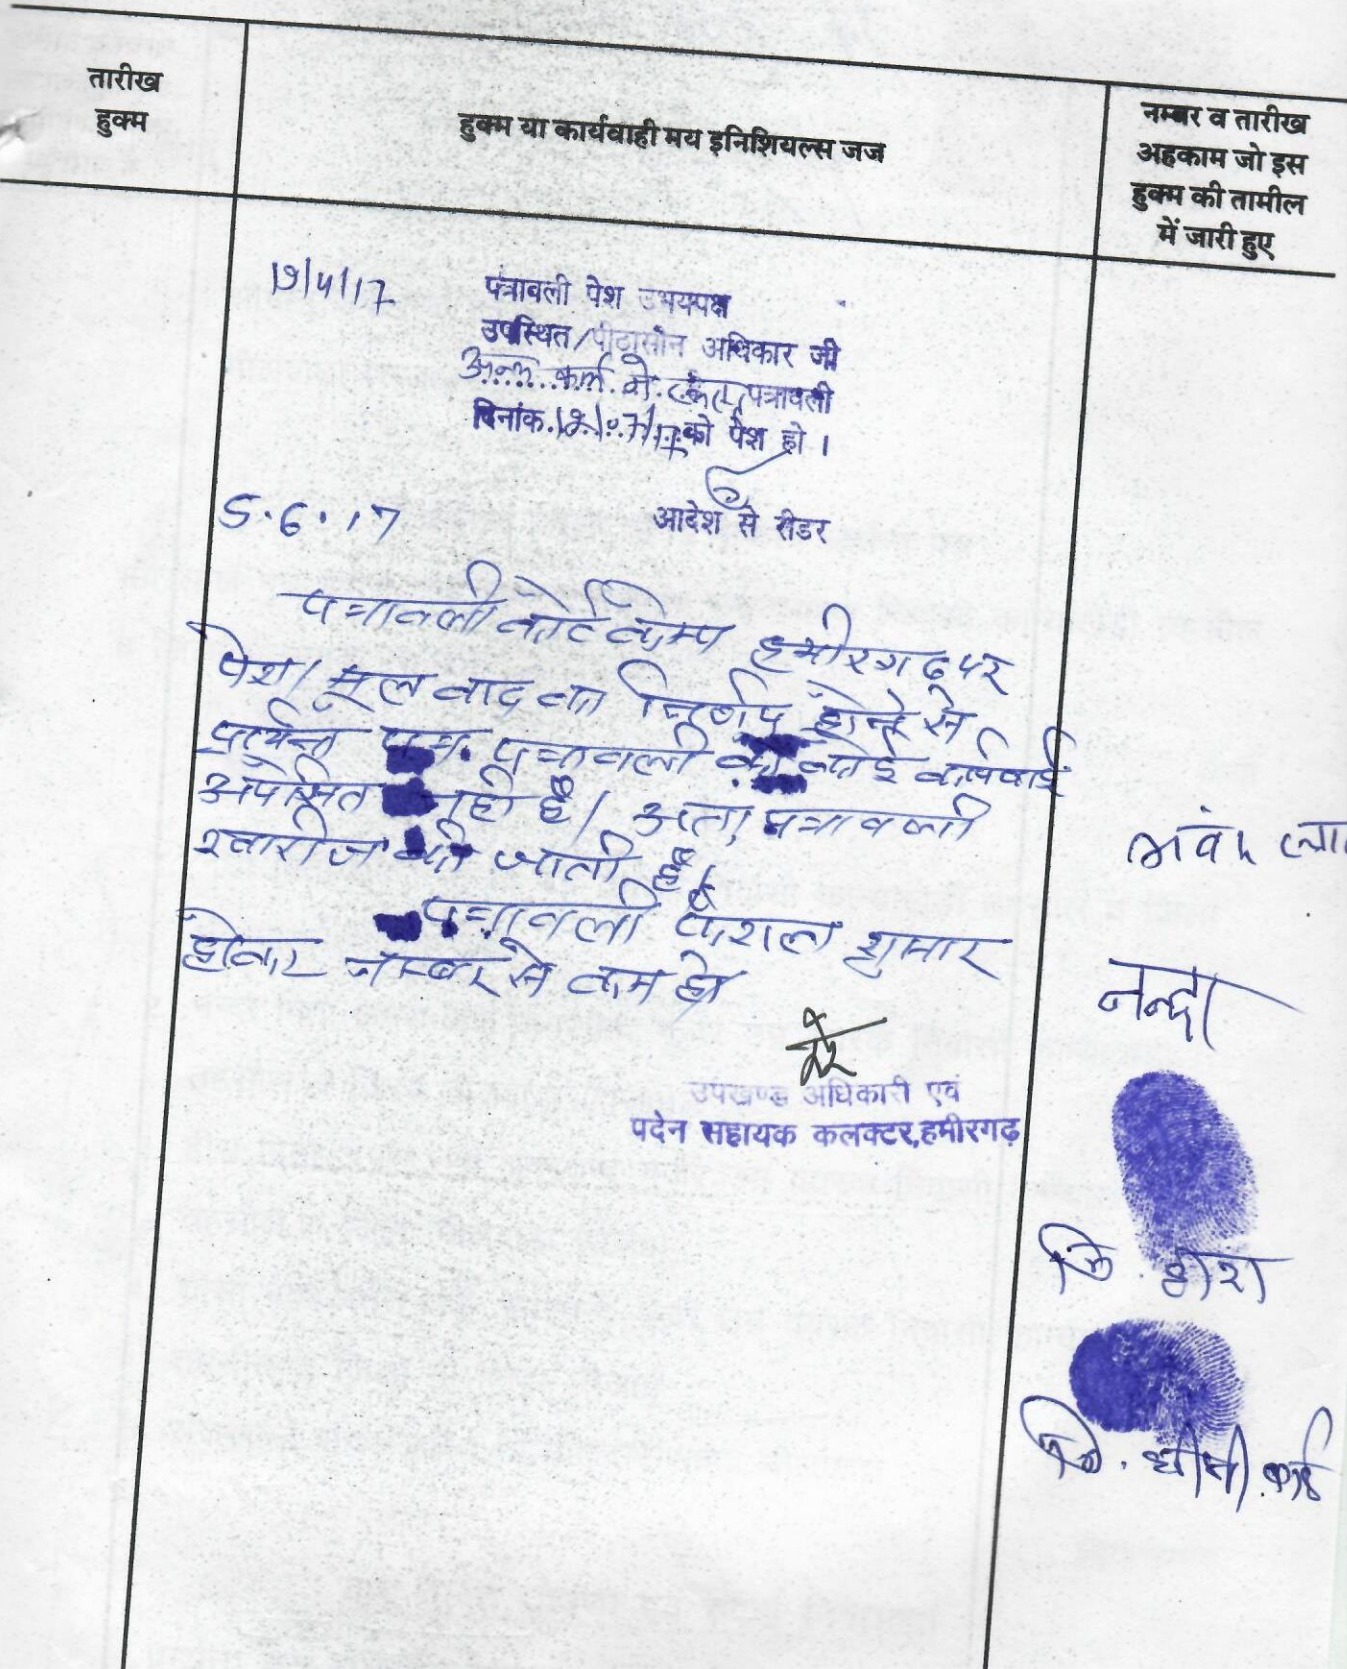 तारीख
हुक्म
हुक्म या कार्यवाही मय इनिशियल्स जज
नम्बर व तारीख
अहकाम जो इस
हुक्म की तामील
में जारी हुए
19/4/17
पत्रावली पेश उभयपक्ष
उपस्थित/पीठासीन अधिकार जी
पत्रावली
दिनांक को पेश हो ।
आदेश से रीडर
5.6.17
पत्रावली कोर्ट केम्प हमीरगढ पर
पेश। मूल वाद का निर्णय होने से
पत्रावली कोई कार्यवाई
अपेक्षित नही है। अतः पत्रावली
खारीज की जाती है।
पत्रावली फैशल शुमार
होकर नम्बर से कम हो
उपखण्ड अधिकारी एवं
पदेन सहायक कलक्टर,हमीरगढ़
नन्दा